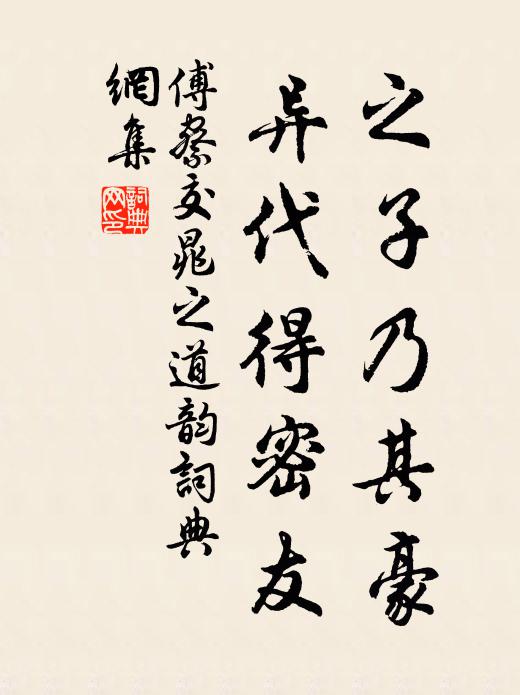 之子乃其豪
异代得密友
傅察交晁之道韵詞典
網集
詞典网印